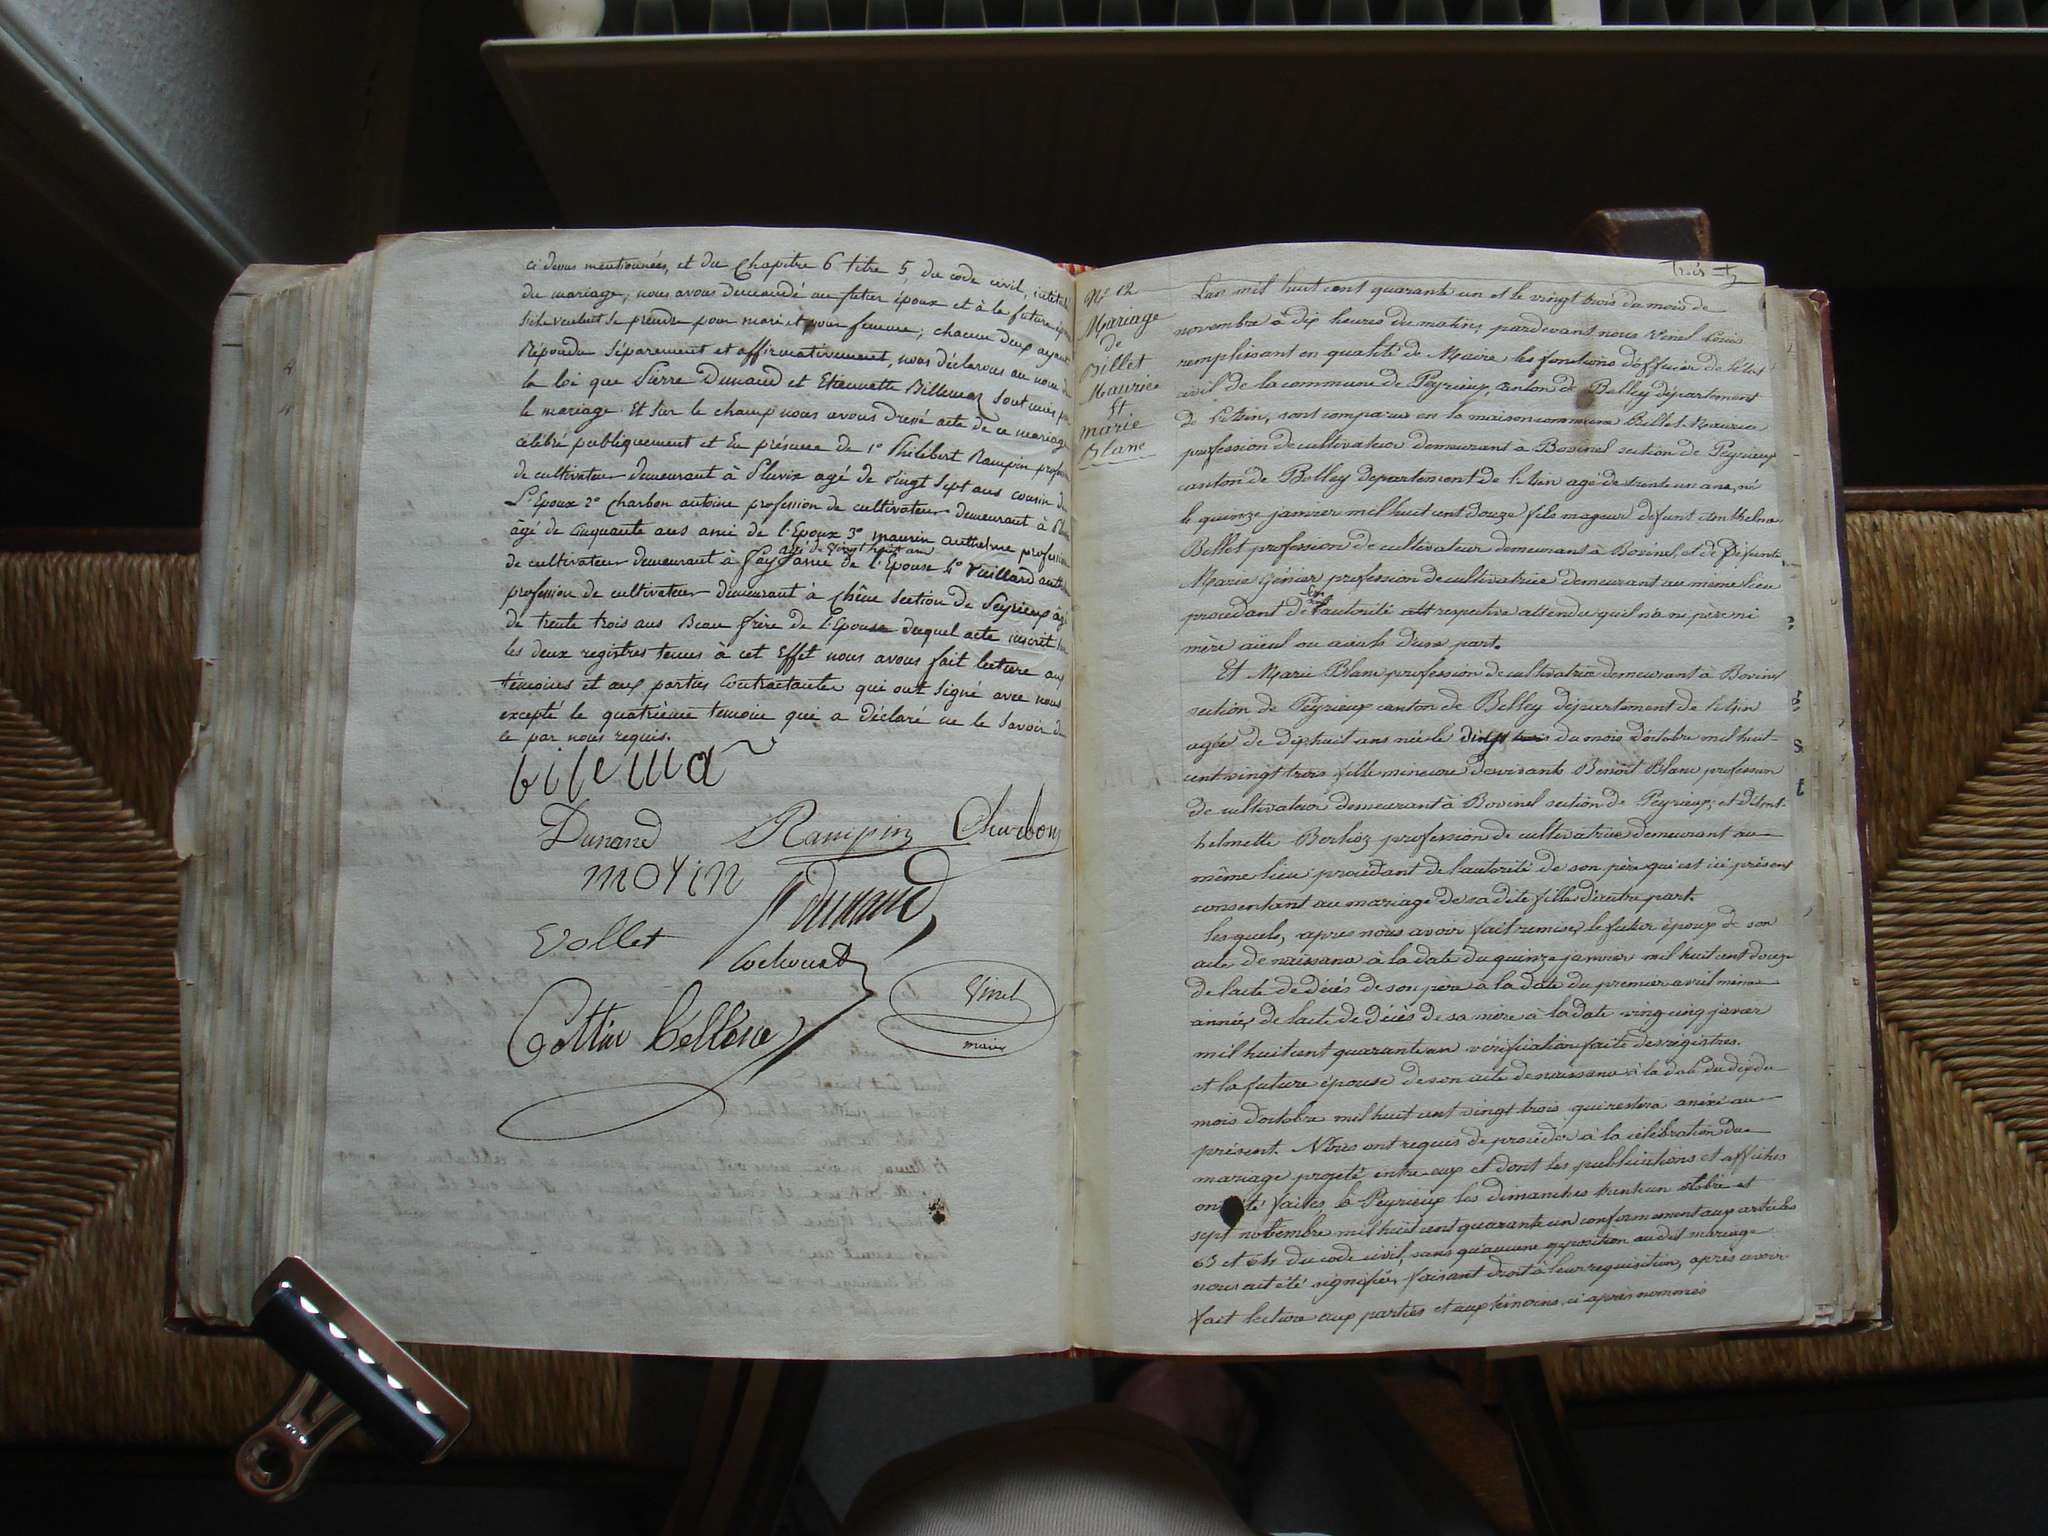 ci devus mentionnées, et du Chapitre 6 titre 5, du code civil, intitulé
du mariage, nous avons demandé au futur époux et à la future
s'ils veulent se prendre pour mari et pour femme; chacun deux ayant
Répondu séparement et affirmativement, nous déclarons au nom de
la loi que Pierre Dunand et Etiennette Billemaz sont unis par
le mariage. Et sur le champ nous avons dressé acte de ce mariage
célébré publiquement et En présence de 1º Philibert Rampin
de cultivateur demeurant à Pluvix agé de vingt sept ans cousin de
L'Epoux 2º Charbon antoine profession de cultivateur demeurant à
âgé de Cinquante ans ami de l'Epoux 3º maurin anthelme profession
agé de vingt huit ans
de cultivateur demeurant à Fay amie de l'Epouse 4º Vuillard
profession de cultivateur demeurant à Chêne Section de Peyrieux agé
de trente trois ans Beau frère de l'Epouse duquel acte inscrit sur
les deux registres tenus à cet Effet nous avons fait lecture aux
témoins et aux parties Contractantes qui ont signé avec nous
excepté le quatrième temoin qui a déclaré ne le Savoir de
ce par nous requis.
Dunand Rampin Charbon
moyin
Dunand
Vollet
Cochonat
Vinel
maire
Cottin
trois
Nº 12
Mariage
de
Billet
Maurice
Et
Marie
Blanc
Lan mil huit cent quarante un et le vingt trois du mois de
novembre à dix heures du matin, pardevant nous Vinel Louis
remplissant en qualité de Maire les fonctions d'officier de l'état
civil de la commune de Peyrieux, canton de Belley département
de l'Ain, sont comparus en la maison commune Billet Maurice
profession de cultivateur demeurant à Bovinel section de Peyrieux
canton de Belley departement de l'Ain agé de trente un ans, né
le quinze janvier mil huit cent douze fils mageur defunt Anthelme
Bellet profession de cultivateur demeurant à Bovinel, et de défunte
Marie profession de cultivatrice demeurant au même lieu
procedant de l'autorité respective attendu qu'il n'a ni père ni
mère aïeul ou aïeule d'une part.
Et Marie Blanc profession de cultivatrice demeurant à Bovinel
section de Peyrieux canton de Belley département de l'Ain
agée de dix huit ans née le du mois d'octobre mil huit
cent vingt trois fille mineure de vivants Benoit Blanc profession
de cultivateur demeurant à Bovinel section de Peyrieux; et d'Ant-
helmette Berlioz profession de cultivatrice demeurant au
même lieu procédant de l'autorité de son père qui est ici présent
consentant au mariage de sa dite fille d'autre part.
les quels, apres nous avoir fait remise, le futur époux de son
acte de naissance à la date du quinze janvier mil huit cent douze
de l'acte de décès de son père à la date du premier avril même
année, de l'acte de décès de sa mère à la date vingt cinq janvier
mil huit cent quarante un verification faite des registres.
et la future épouse de son acte de naissance à la date du dix du
mois d'octobre mil huit cent vingt trois qui restera anéxé au
présent. Nous ont requis de procéder à la célébration du
mariage projeté entre eux et dont les publications et affiches
ont été faites à Peyrieux les dimanches trente un octobre et
sept novembre mil huit cent quarante un conformement aux articles
63 et 64 du code civil, sans qu'aucune opposition audit mariage
nous ait été signifiée, faisant droit à leur requisition, après avoir
fait lecture aux parties et aux témoins ci après nommés